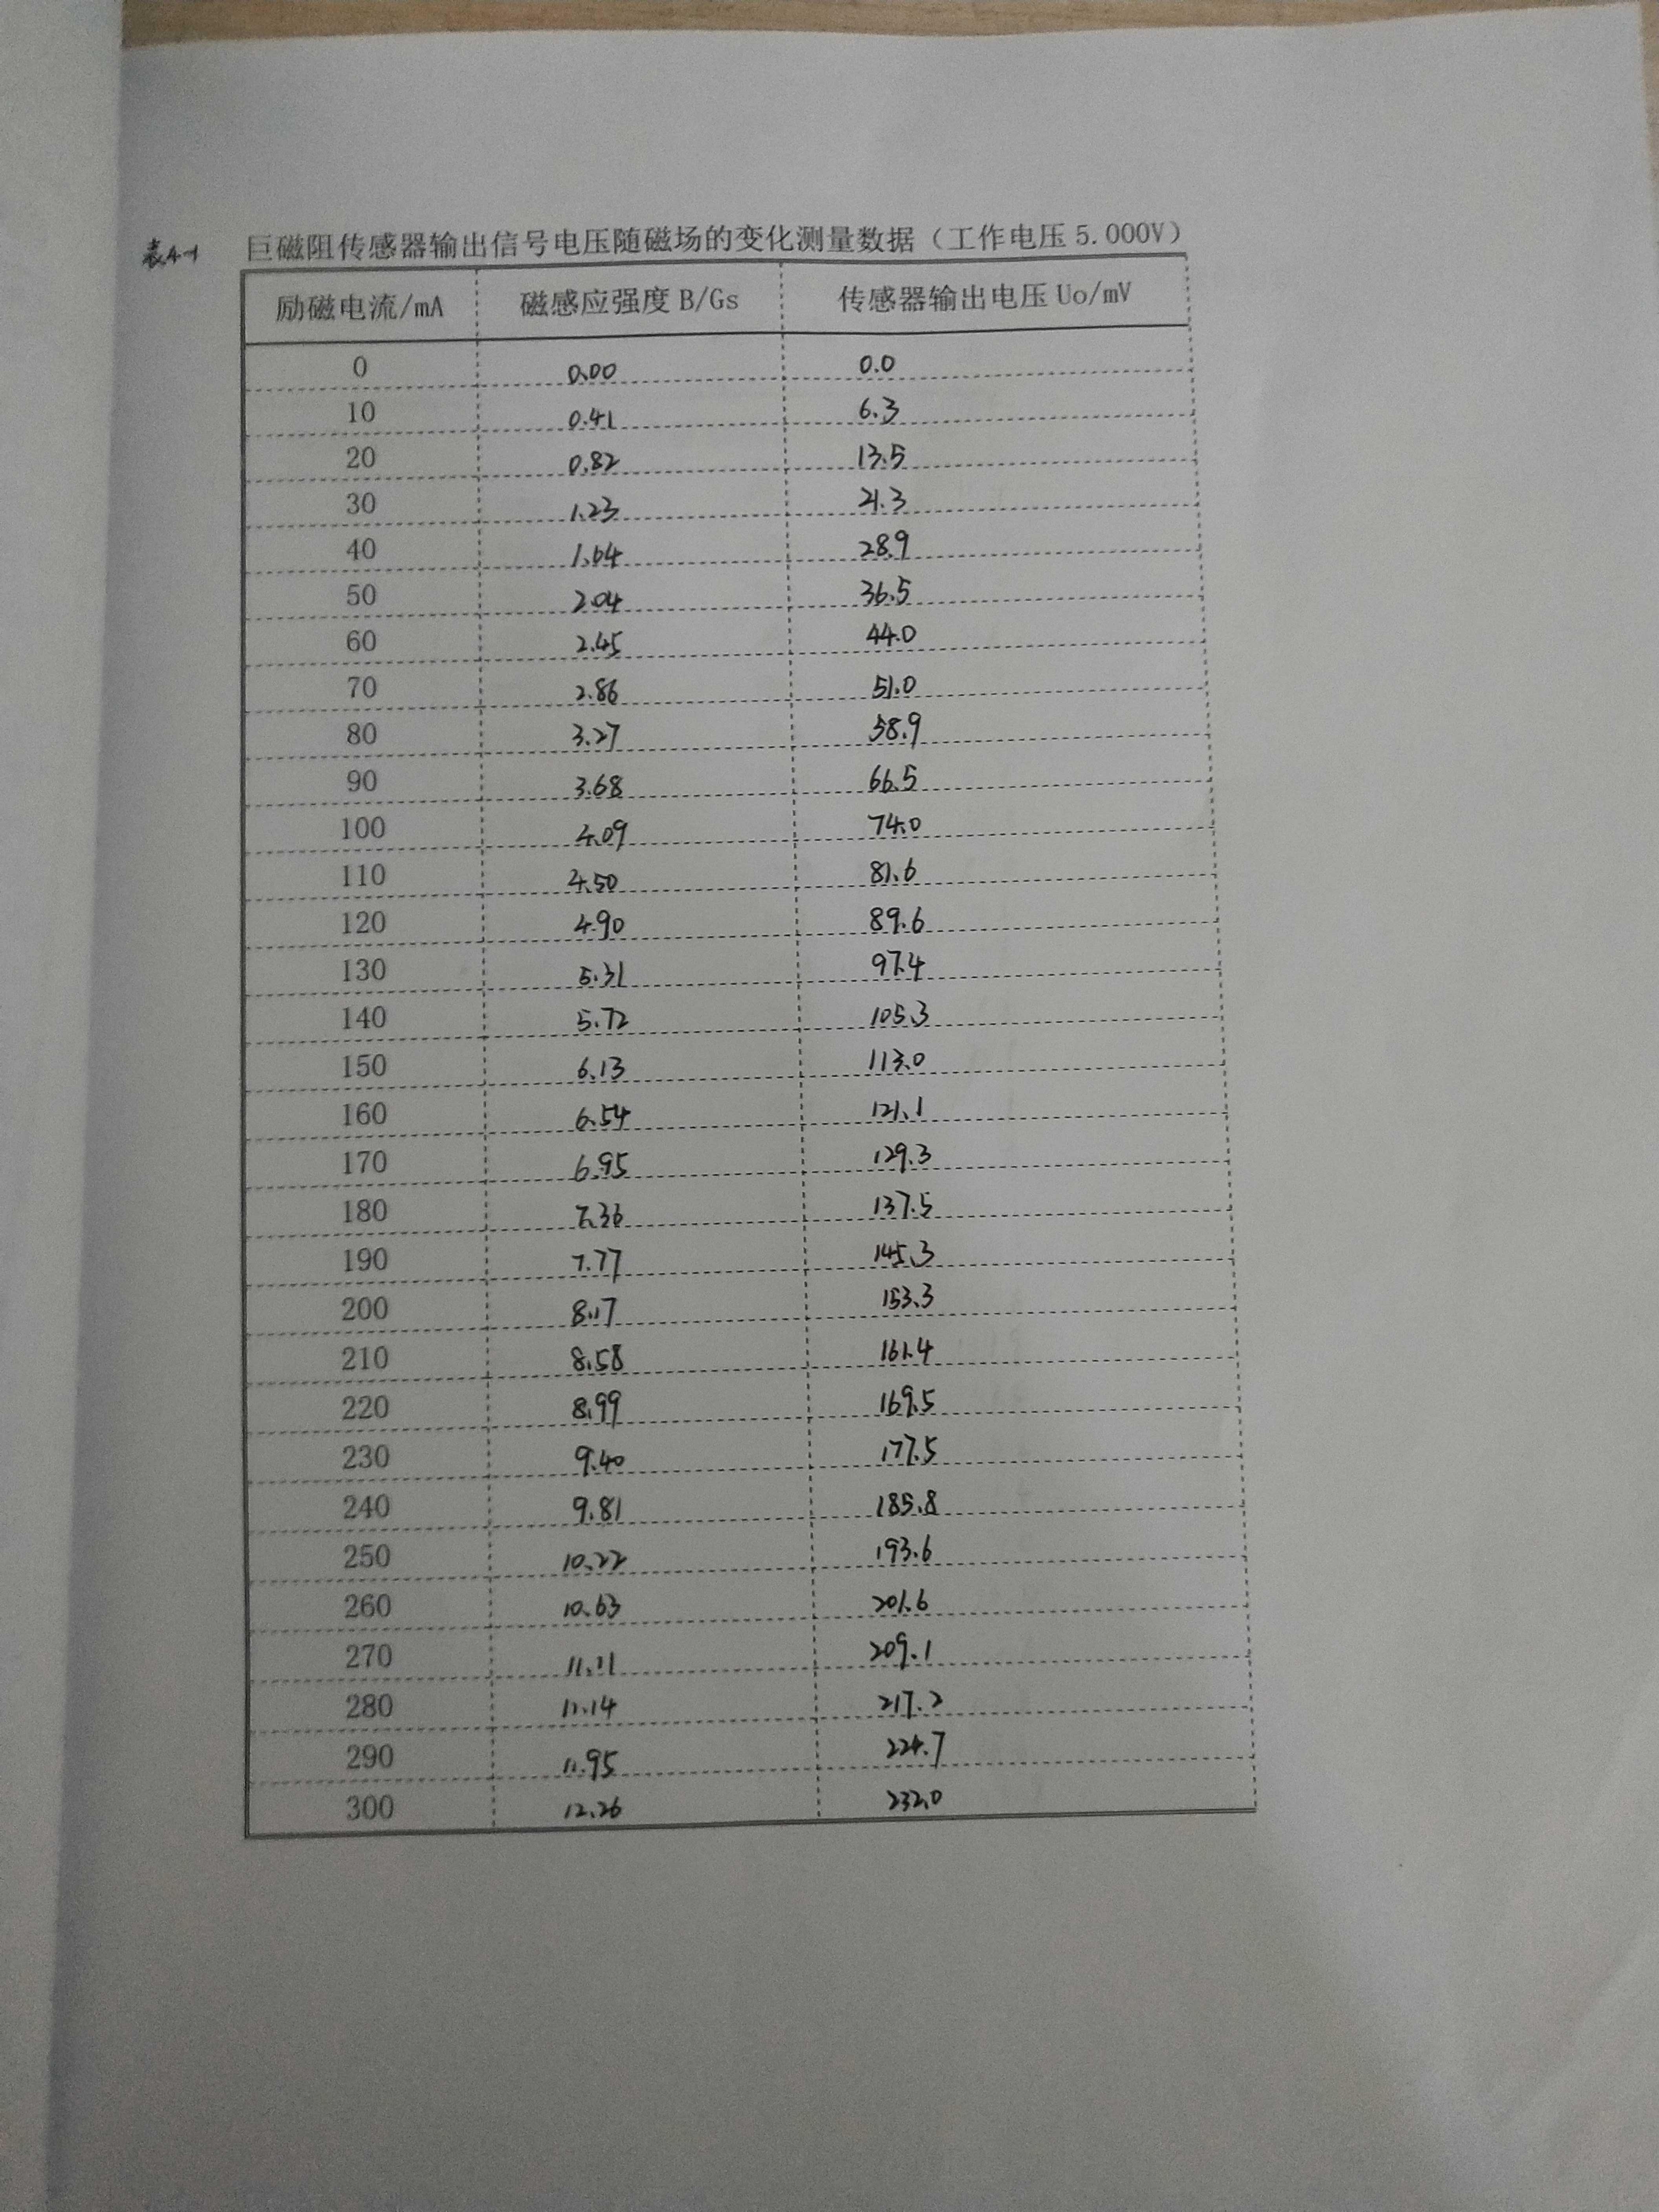 表4-1 巨磁阻传感器输出信号电压随磁场的变化测量数据（工作电压5.000V）
励磁电流/mA 磁感应强度 B/Gs 传感器输出电压 Uo/mV
0 0.00 0.0
10 0.41 6.3
20 0.82 13.5
30 1.23 21.3
40 1.64 28.9
50 2.04 36.5
60 2.45 44.0
70 2.86 51.0
80 3.27 58.9
90 3.68 66.5
100 4.09 74.0
110 4.50 81.6
120 4.90 89.6
130 5.31 97.4
140 5.72 105.3
150 6.13 113.0
160 6.54 121.1
170 6.95 129.3
180 7.36 137.5
190 7.77 145.3
200 8.17 153.3
210 8.58 161.4
220 8.99 169.5
230 9.40 177.5
240 9.81 185.8
250 10.22 193.6
260 10.63 201.6
270 11.11 209.1
280 11.14 217.2
290 11.95 224.7
300 12.26 232.0